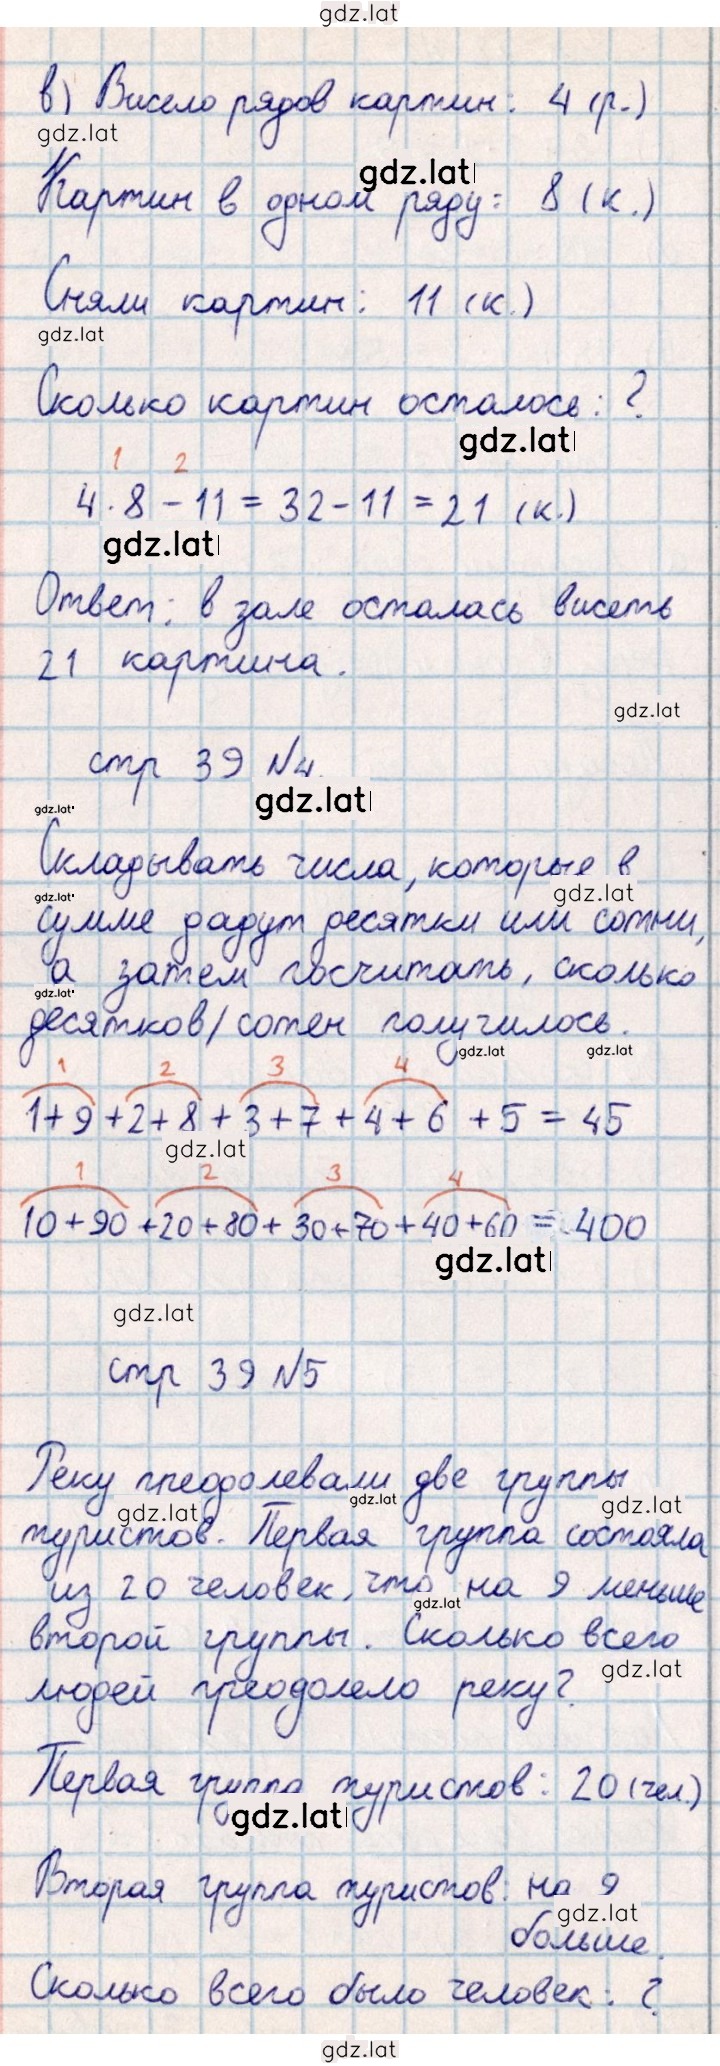 gdz.lat
в) Висело рядов картин: 4 (р.)
gdz.lat
gdz.lat
Картин в одном ряду: 8 (к.)
Сняли картин: 11 (к.)
gdz.lat
Сколько картин осталось: ?
gdz.lat
1 2
4 · 8 - 11 = 32 - 11 = 21 (к.)
gdz.lat
Ответ: в зале осталась висеть
21 картина.
gdz.lat
стр 39 №4.
gdz.lat
gdz.lat
Складывать числа, которые в
gdz.lat
gdz.lat
сумме дадут десятки или сотни,
а затем посчитать, сколько
gdz.lat
десятков/сотен получилось.
gdz.lat gdz.lat
1 2 3 4
1+9+2+8+3+7+4+6+5=45
gdz.lat
1 2 3 4
10+90+20+80+30+70+40+60=400
gdz.lat
gdz.lat
стр 39 №5
Реку преодолевали две группы
gdz.lat gdz.lat gdz.lat
туристов. Первая группа состояла
из 20 человек, что на 9 меньше
gdz.lat
второй группы. Сколько всего
gdz.lat
людей преодолело реку?
Первая группа туристов: 20 (чел.)
gdz.lat
Вторая группа туристов: на 9
gdz.lat
больше.
Сколько всего было человек: ?
gdz.lat